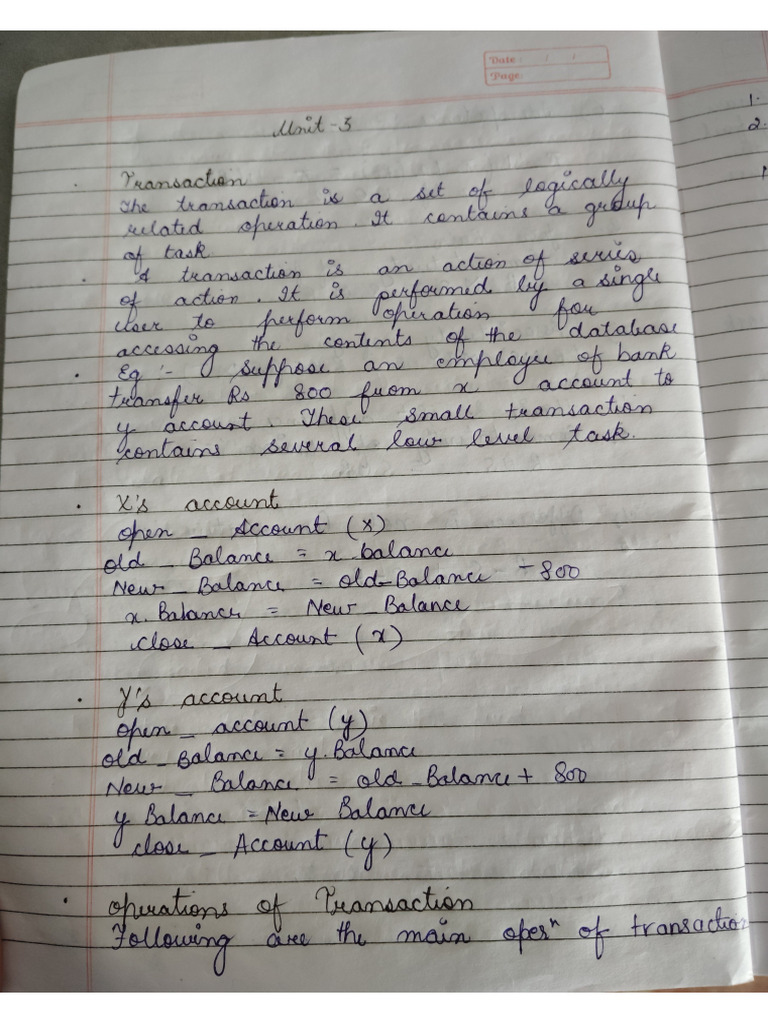 Date : / /
Page:
1.
2.
Unit - 3
Transaction
The transaction is a set of logically
related operation. It contains a group
of task.
A transaction is an action of series
of action. It is performed by a single
user to perform operation for
accessing the contents of the database
Eg :- suppose an employee of bank
transfer Rs 800 from x account to
y account. These small transaction
contains several low level task.
X's account
open _ Account (x)
Old _ Balance = x balance
New _ Balance = old-Balance - 800
x. Balance = New _ Balance
close _ Account (x)
Y's account
open _ account (y)
old _ Balance = y. Balance
New _ Balance = old _ Balance + 800
y Balance = New Balance
close _ Account (y)
operations of Transaction
Following are the main opesⁿ of transaction